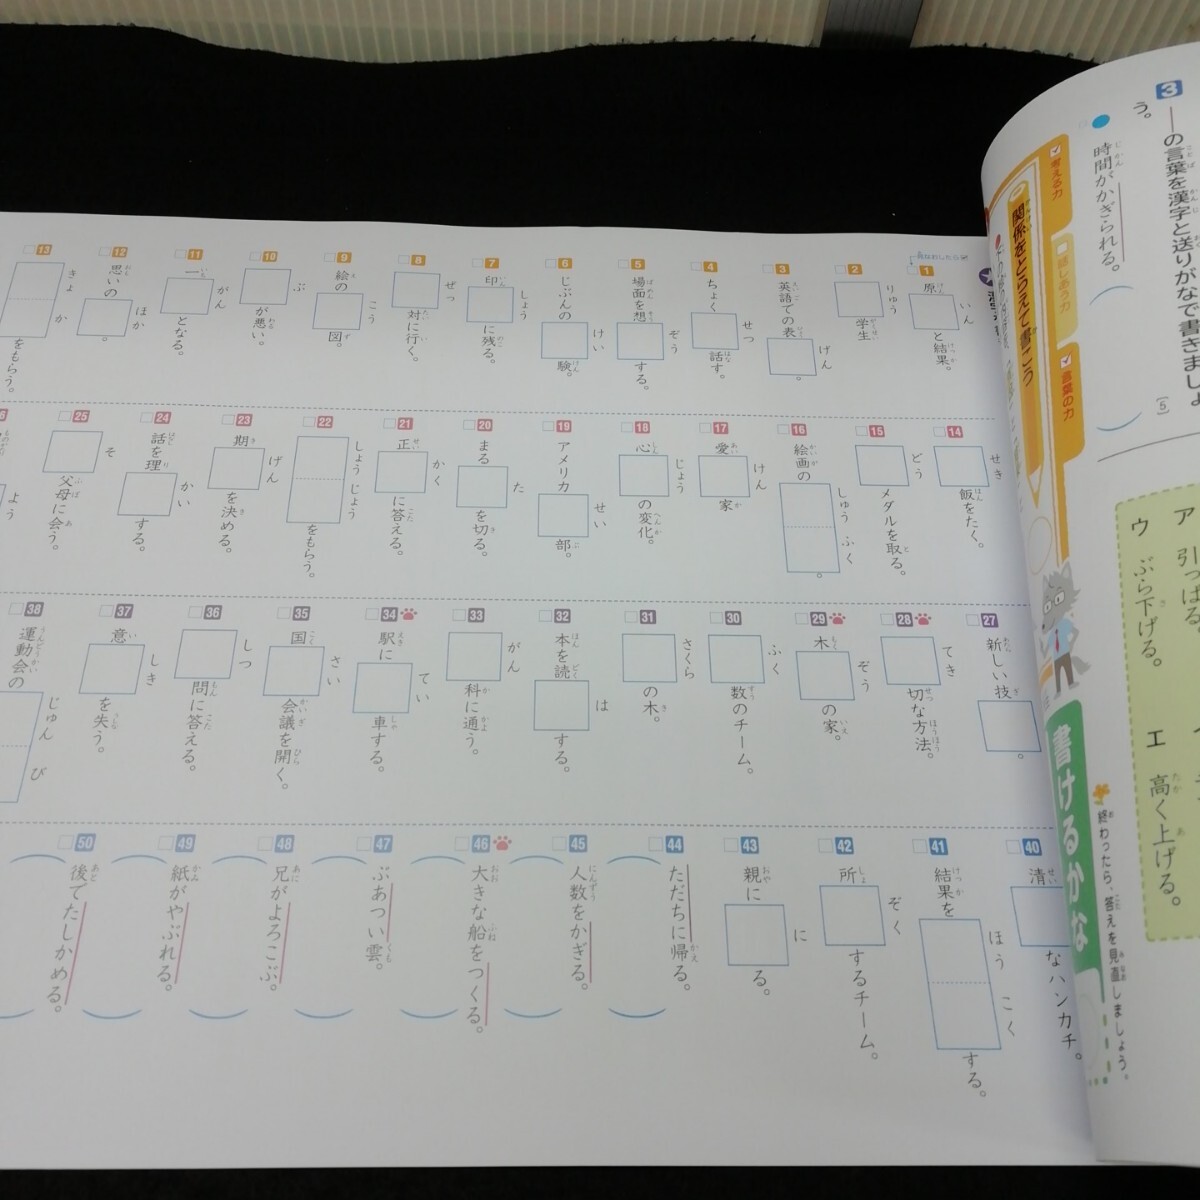 3 ――の言葉を漢字と送りがなで書きましょう。
時間がかぎられる。
[5]
ア 引っぱる。
ウ ぶら下げる。
エ 高く上げる。
考える力
話しあう力
言葉の力
関係をとらえて書こう
書けるかな
終わったら、答えを見直しましょう。
見なおしたら
1 原□と結果。 いん
2 □学生 りゅう
3 英語での表□。 げん
4 ちょく□話す。 せつ
5 場面を想□する。 ぞう
6 じぶんの□験。 けい
7 印□に残る。 しょう
8 □対に行く。 ぜっ
9 絵の□図。 こう
10 □が悪い。 ぶ
11 一□となる。 がん
12 思いの□。 ほか
13 □□をもらう。 きょ か
14 □飯をたく。 せき
15 □メダルを取る。 どう
16 絵画の□□。 しゅう ふく
17 愛□家 けん
18 心□の変化。 じょう
19 アメリカ□部。 せい
20 まる□を切る。 た
21 正□に答える。 かく
22 □□をもらう。 しょう じょう
23 期□を決める。 げん
24 話を理□する。 かい
25 □父母に会う。 そ
27 新しい技□。
28 □切な方法。 てき
29 木□の家。 ぞう
30 □数のチーム。 ふく
31 □の木。 さくら
32 本を読□する。 は
33 □科に通う。 がん
34 駅に□車する。 てい
35 国□会議を開く。 さい
36 □問に答える。 しつ
37 意□を失う。 しき
38 運動会の□□ じゅん び
40 清□なハンカチ。
41 結果を□□する。 ほう こく
42 所□するチーム。 ぞく
43 親に□る。 に
44 ただちに帰る。
45 人数をかぎる。
46 大きな船をつくる。
47 ぶあつい雲。
48 兄がよろこぶ。
49 紙がやぶれる。
50 後でたしかめる。